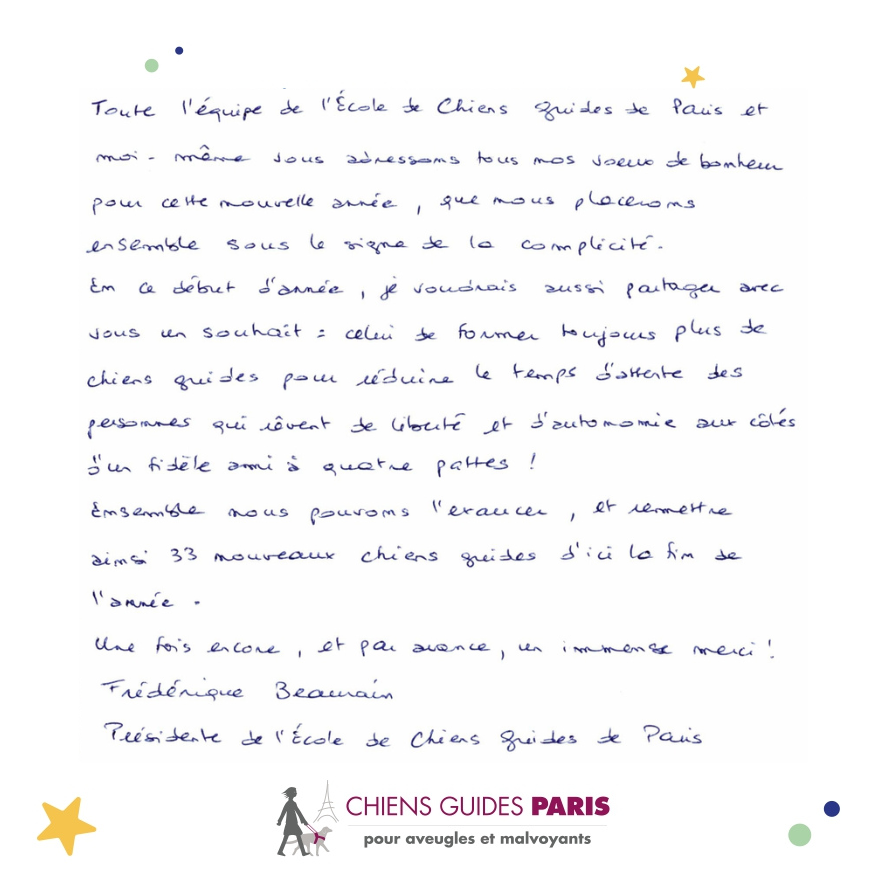 Toute l'équipe de l'École de Chiens guides de Paris et
moi-même vous adressons tous nos voeux de bonheur
pour cette nouvelle année, que nous placerons
ensemble sous le signe de la complicité.
En ce début d'année, je voudrais aussi partager avec
vous un souhait : celui de former toujours plus de
chiens guides pour réduire le temps d'attente des
personnes qui rêvent de liberté et d'autonomie aux côtés
d'un fidèle ami à quatre pattes !
Ensemble nous pouvons l'exaucer, et remettre
ainsi 33 nouveaux chiens guides d'ici la fin de
l'année.
Une fois encore, et par avance, un immense merci !
Frédérique Beaurain
Présidente de l'École de Chiens guides de Paris
CHIENS GUIDES PARIS
pour aveugles et malvoyants